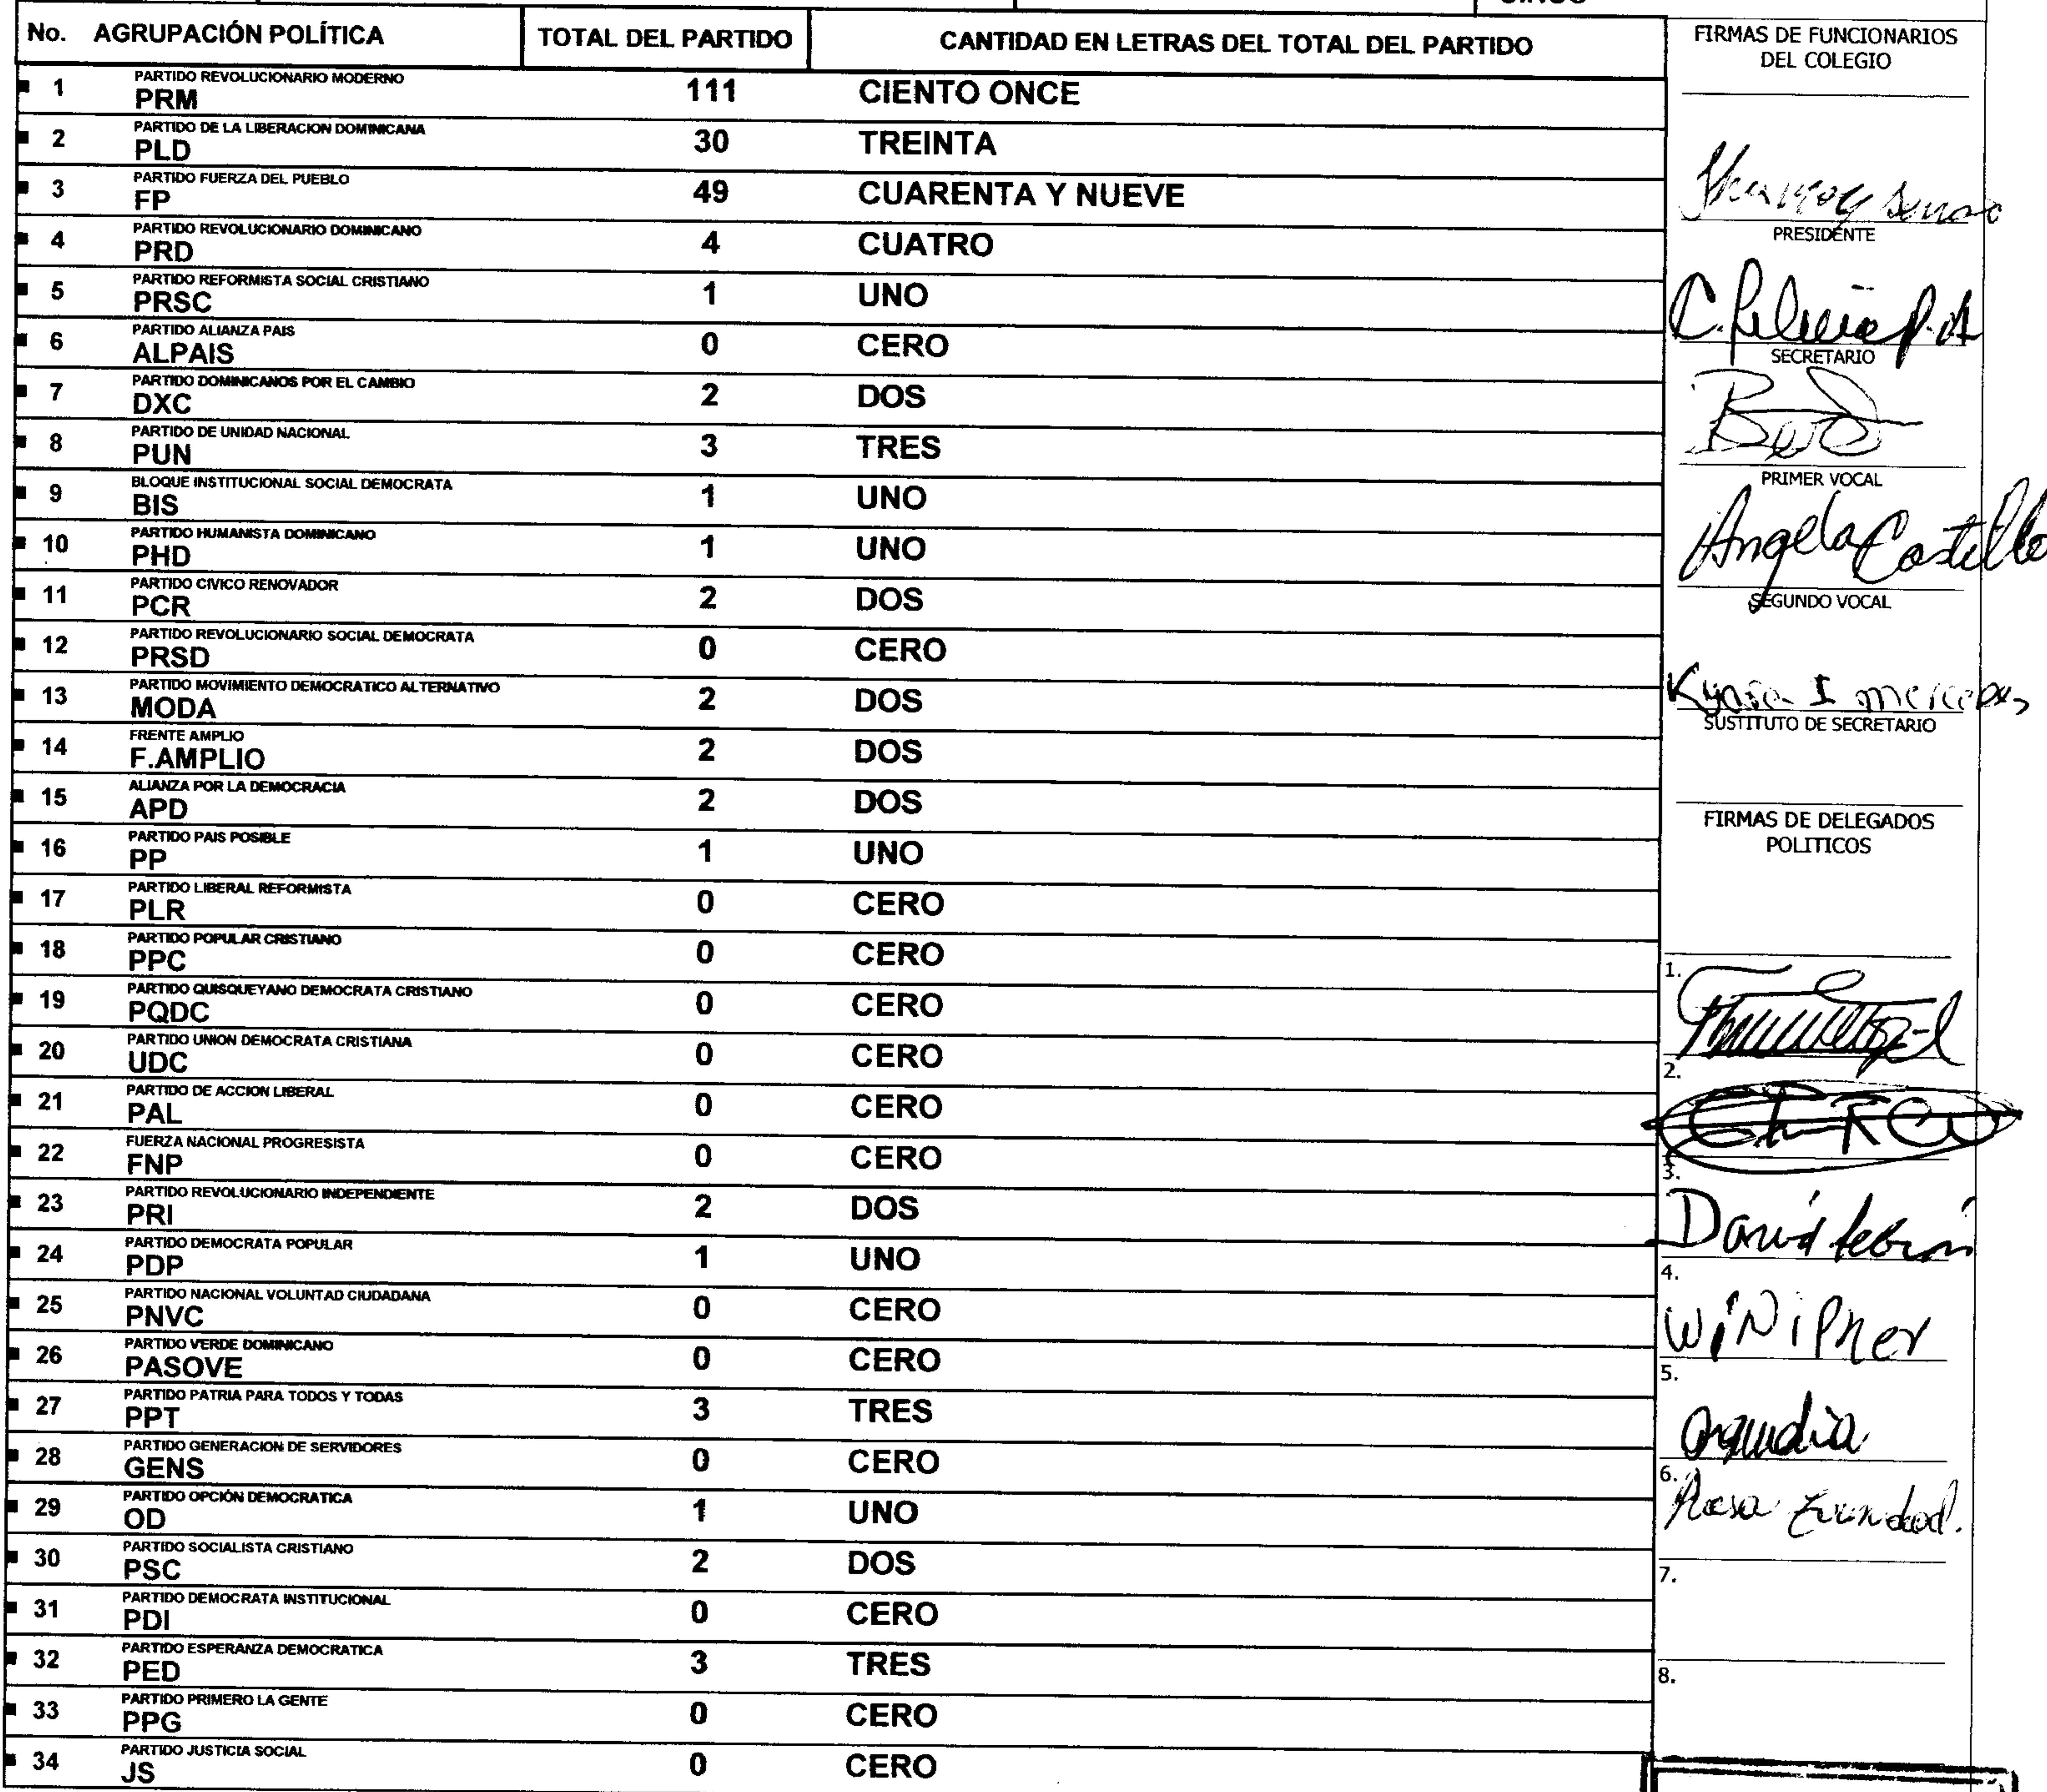 No. AGRUPACIÓN POLÍTICA TOTAL DEL PARTIDO CANTIDAD EN LETRAS DEL TOTAL DEL PARTIDO
PARTIDO REVOLUCIONARIO MODERNO
1 PRM 111 CIENTO ONCE
PARTIDO DE LA LIBERACION DOMINICANA
2 PLD 30 TREINTA
PARTIDO FUERZA DEL PUEBLO
3 FP 49 CUARENTA Y NUEVE
PARTIDO REVOLUCIONARIO DOMINICANO
4 PRD 4 CUATRO
PARTIDO REFORMISTA SOCIAL CRISTIANO
5 PRSC 1 UNO
PARTIDO ALIANZA PAIS
6 ALPAIS 0 CERO
PARTIDO DOMINICANOS POR EL CAMBIO
7 DXC 2 DOS
PARTIDO DE UNIDAD NACIONAL
8 PUN 3 TRES
BLOQUE INSTITUCIONAL SOCIAL DEMOCRATA
9 BIS 1 UNO
PARTIDO HUMANISTA DOMINICANO
10 PHD 1 UNO
PARTIDO CIVICO RENOVADOR
11 PCR 2 DOS
PARTIDO REVOLUCIONARIO SOCIAL DEMOCRATA
12 PRSD 0 CERO
PARTIDO MOVIMIENTO DEMOCRATICO ALTERNATIVO
13 MODA 2 DOS
FRENTE AMPLIO
14 F.AMPLIO 2 DOS
ALIANZA POR LA DEMOCRACIA
15 APD 2 DOS
PARTIDO PAIS POSIBLE
16 PP 1 UNO
PARTIDO LIBERAL REFORMISTA
17 PLR 0 CERO
PARTIDO POPULAR CRISTIANO
18 PPC 0 CERO
PARTIDO QUISQUEYANO DEMOCRATA CRISTIANO
19 PQDC 0 CERO
PARTIDO UNION DEMOCRATA CRISTIANA
20 UDC 0 CERO
PARTIDO DE ACCION LIBERAL
21 PAL 0 CERO
FUERZA NACIONAL PROGRESISTA
22 FNP 0 CERO
PARTIDO REVOLUCIONARIO INDEPENDIENTE
23 PRI 2 DOS
PARTIDO DEMOCRATA POPULAR
24 PDP 1 UNO
PARTIDO NACIONAL VOLUNTAD CIUDADANA
25 PNVC 0 CERO
PARTIDO VERDE DOMINICANO
26 PASOVE 0 CERO
PARTIDO PATRIA PARA TODOS Y TODAS
27 PPT 3 TRES
PARTIDO GENERACION DE SERVIDORES
28 GENS 0 CERO
PARTIDO OPCIÓN DEMOCRATICA
29 OD 1 UNO
PARTIDO SOCIALISTA CRISTIANO
30 PSC 2 DOS
PARTIDO DEMOCRATA INSTITUCIONAL
31 PDI 0 CERO
PARTIDO ESPERANZA DEMOCRATICA
32 PED 3 TRES
PARTIDO PRIMERO LA GENTE
33 PPG 0 CERO
PARTIDO JUSTICIA SOCIAL
34 JS 0 CERO
FIRMAS DE FUNCIONARIOS
DEL COLEGIO
PRESIDENTE
SECRETARIO
PRIMER VOCAL
Angela Castillo
SEGUNDO VOCAL
SUSTITUTO DE SECRETARIO
FIRMAS DE DELEGADOS
POLITICOS
1.
2.
3.
David
4.
5.
6.
Rosa
7.
8.